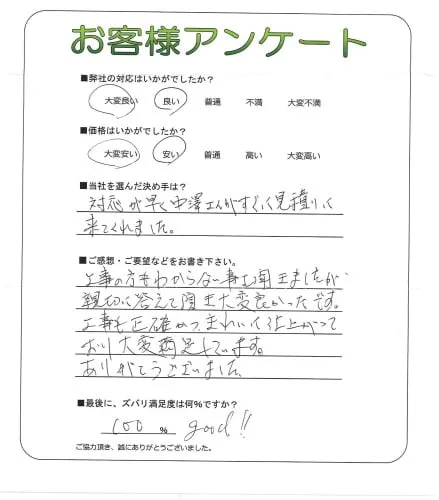 お客様アンケート
■弊社の対応はいかがでしたか?
大変良い 良い 普通 不満 大変不満
■価格はいかがでしたか?
大変安い 安い 普通 高い 大変高い
■当社を選んだ決め手は?
対応が早く中澤さんがすぐに見積りに
来てくれました。
■ご感想・ご要望などをお書き下さい。
工事の方もわからない事も聞きましたが
親切に答えて頂き大変良かったです。
工事も正確かつきれいに仕上がって
おり大変満足しています。
ありがとうございました。
■最後に、ズバリ満足度は何%ですか?
100 % good!!
ご協力頂き、誠にありがとうございました。